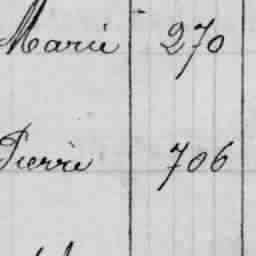 Marie 270
Pierre 706